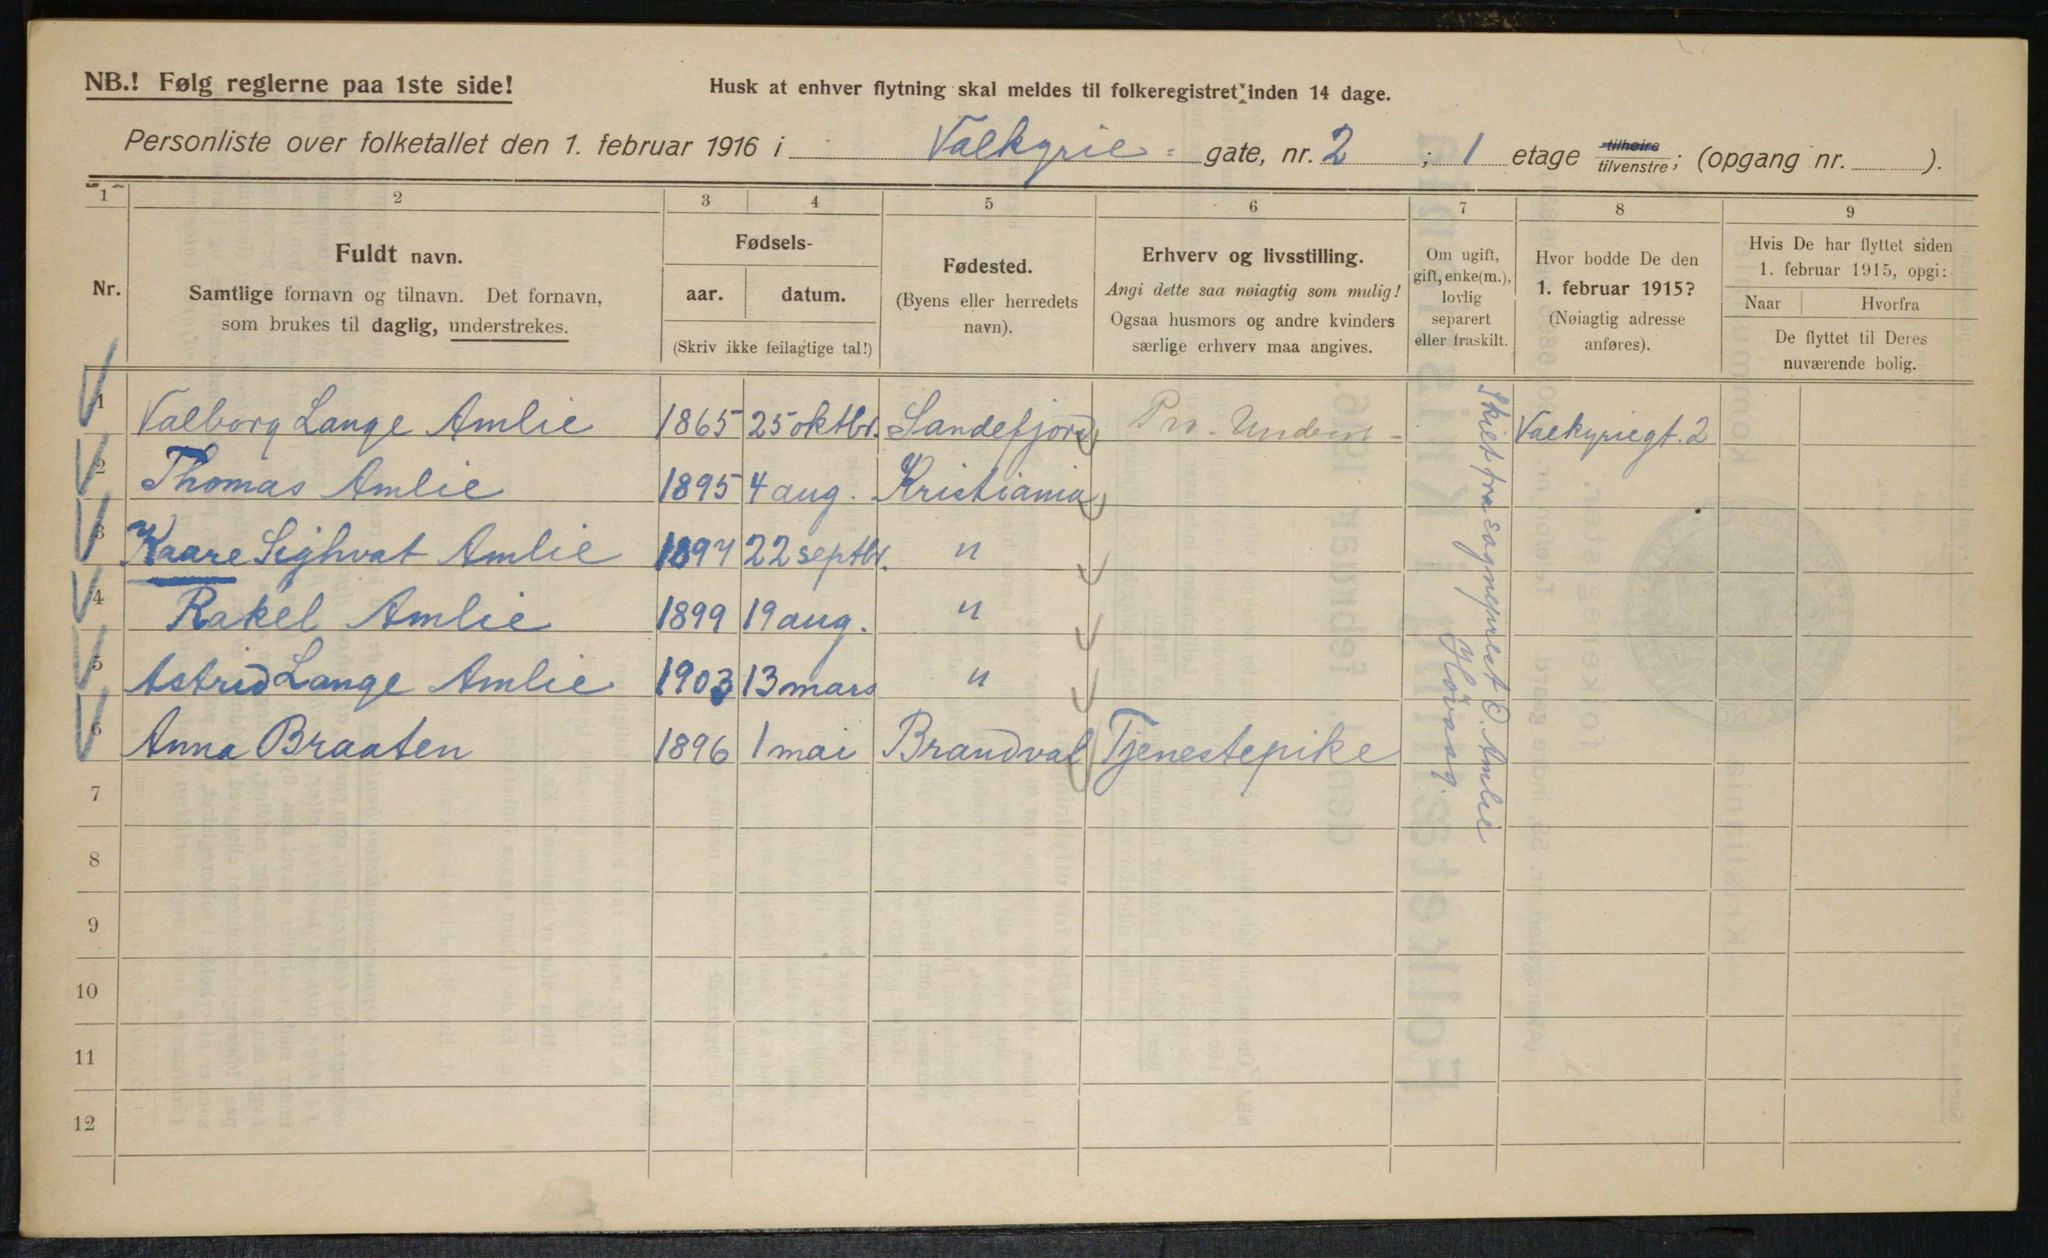 NB.! Følg reglerne paa 1ste side!
Husk at enhver flytning skal meldes til folkeregistret inden 14 dage.
Personliste over folketallet den 1. februar 1916 i Valkyrie gate, nr. 2 ; 1 etage tilhøire tilvenstre; (opgang nr. ).
1 2 3 4 5 6 7 8 9
Nr.
Fuldt navn.
Samtlige fornavn og tilnavn. Det fornavn,
som brukes til daglig, understrekes.
Fødsels-
aar. datum.
(Skriv ikke feilagtige tal!)
Fødested.
(Byens eller herredets
navn).
Erhverv og livsstilling.
Angi dette saa nøiagtig som mulig!
Ogsaa husmors og andre kvinders
særlige erhverv maa angives.
Om ugift,
gift, enke(m.),
lovlig
separert
eller fraskilt.
Hvor bodde De den
1. februar 1915?
(Nøiagtig adresse
anføres).
Hvis De har flyttet siden
1. februar 1915, opgi:
Naar Hvorfra
De flyttet til Deres
nuværende bolig.
1 Valborg Lange Amlie 1865 25 oktbr. Sandefjord Valkyriegt. 2
2 Thomas Amlie 1895 4 aug. Kristiania
3 Kaare Sighvat Amlie 1897 22 septbr. "
4 Rakel Amlie 1899 19 aug. "
5 Astrid Lange Amlie 1903 13 mars "
6 Anna Braaten 1896 1 mai Brandval Tjenestepike
Skilt fra sogneprest O. Amlie
Hövaag.
7
8
9
10
11
12